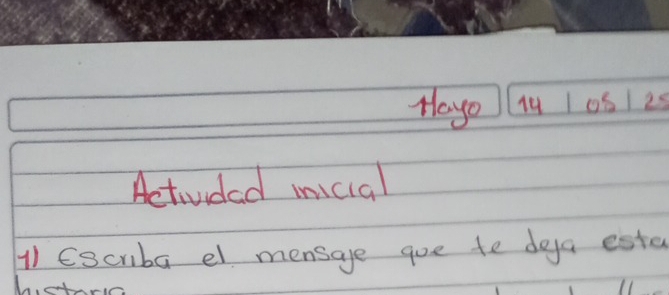 Mayo 14 | 05 | 25
Actividad inicial
1) Escriba el mensaje que te deja esta
historia